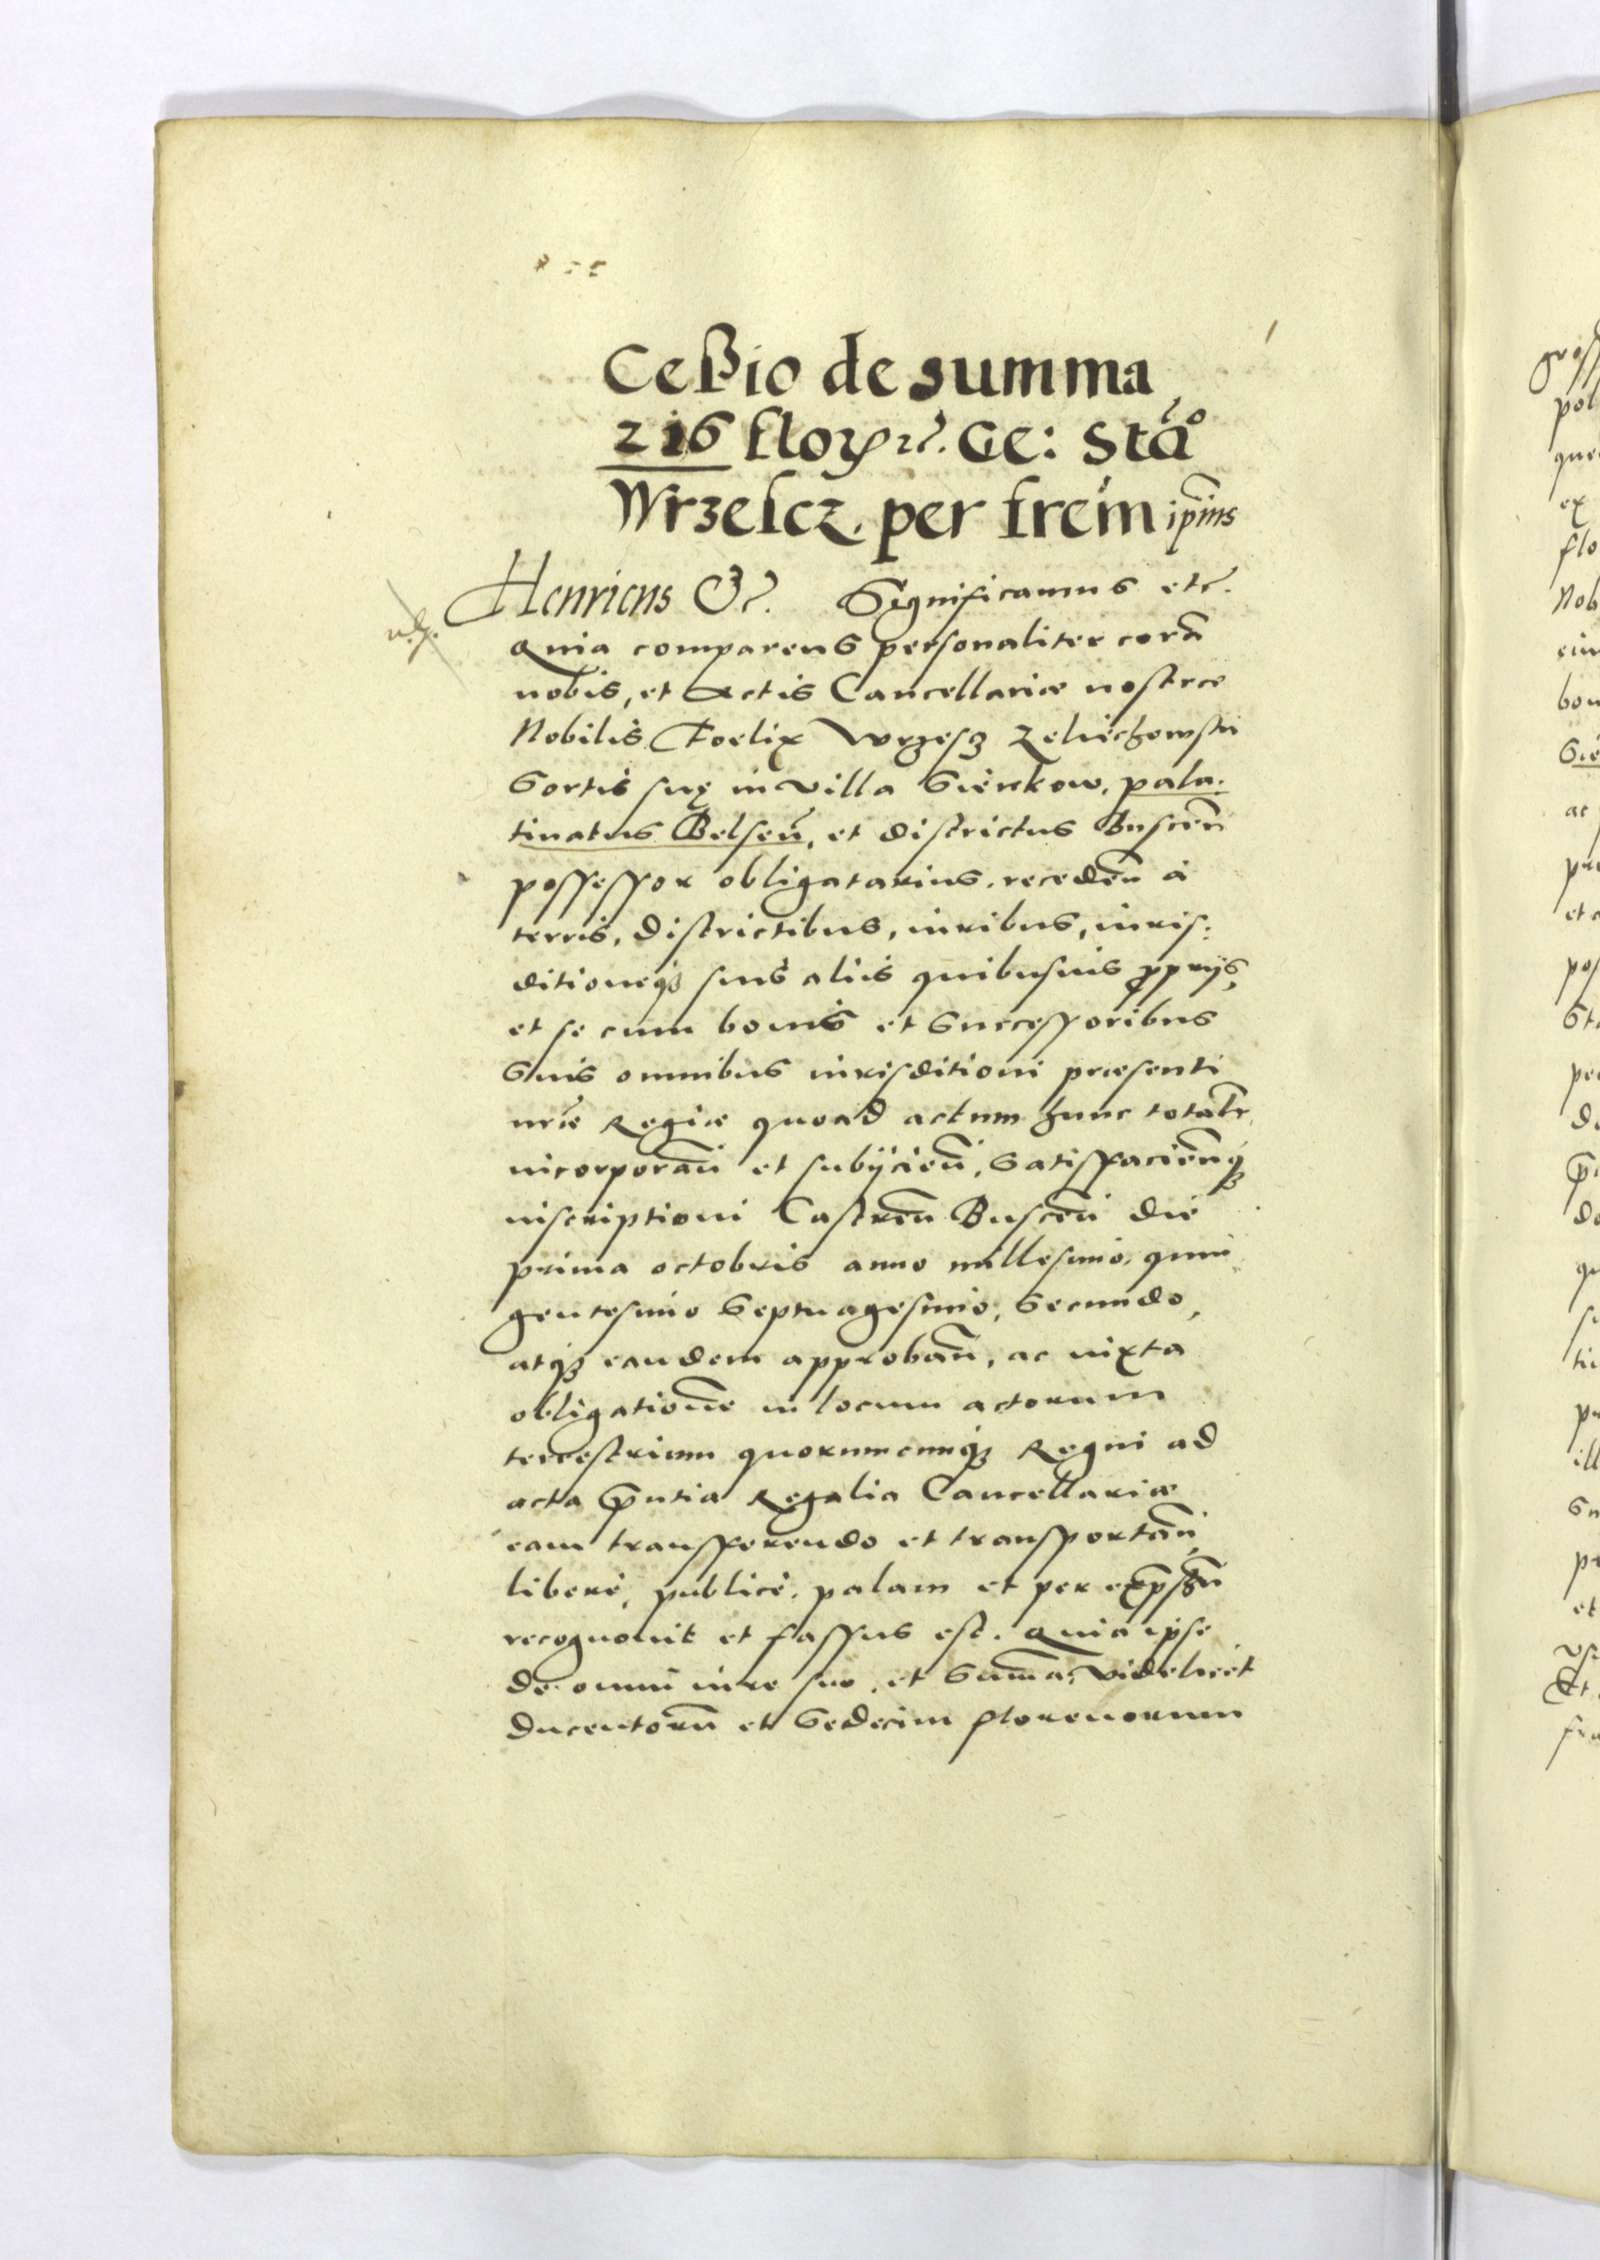 Ceßio de summa
216 floꝝ ꝛc̃. Ge: Sta͠o
Wrzescz. per frem̃ ip̃ius
Henricus &c̃. Significamus etc̃.
Quia comparens personaliter corã
nobis, et Actis Cancellariæ nostræ
Nobilis Foelix Wrzesz Zelichowski
Sortis suę in villa Sienkow, pala:
tinatus Belseñ, et districtus Busceñ
possessor obligatarius, recedeñ à
terris, districtibus, iuribus, iuris:
ditioneq3 suis aliis quibusuis proprijs,
et se cum bonis et successoribus
suis omnibus iurisditioni præsenti
nr̃æ Regiæ quoad actum hunc totalr̃
incorporañ et subijcieñ, satisfacieñq3
inscriptioni Castreñ Busceñ die
prima octobris anno millesimo, quin
gentesimo septuagesimo, secundo,
atq3 eandem approbañ, ac iuxta
obligationẽ in locum actorum
terrestrium quorumcunq3 Regni ad
acta p̃ntia Regalia Cancellariæ
eam transferendo et transportañ,
liberè, publicè, palam et per exp̃ssũ
recognouit et fassus est. Quia ipse
de omni iure suo, et sum̃a, videlicet
ducentorũ et sedecim florenorum